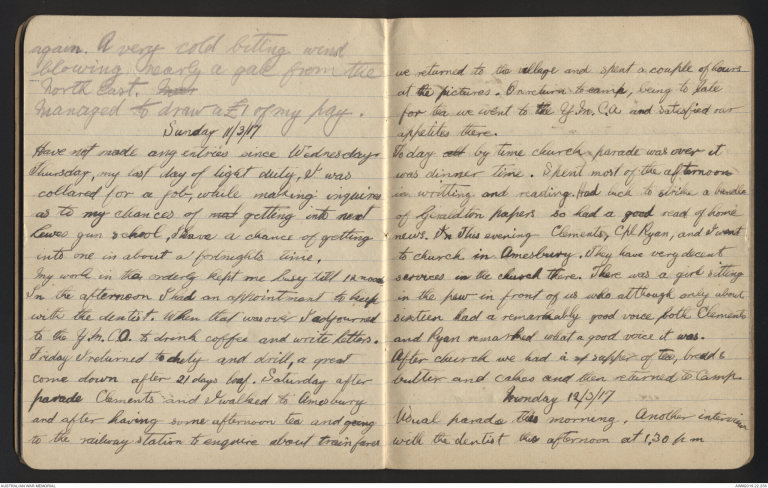 again. A very cold biting wind
blowing nearly a gale from the
North East.
managed to draw a £1 of my pay.
Sunday 11/3/17
Have not made any entries since Wednesday.
Thursday, my last day of light duty, I was
collared for a job, while making inquiries
as to my chances of getting into next
Lewes gun school, I have a chance of getting
into one in about a fortnights time.
My work in the orderly kept me busy till 12 noon
In the afternoon I had an appointment to keep
with the dentist. When that was over I adjourned
to the Y.M.C.A. to drink coffee and write letters.
Friday I returned to duty and drill, a great
come down after 21 days loaf. Saturday after
parade Clements and I walked to Amesbury
and after having some afternoon tea and going
to the railway station to enquire about train fares
we returned to the village and spent a couple of hours
at the pictures. On return to camp, being to late
for tea we went to the Y.M.C.A and satisfied our
appetites there.
Today by time church parade was over it
was dinner time. Spent most of the afternoon
in writting and reading. Had luck to strike a bundle
of Geraldton papers so had a good read of home
news. In This evening Clements, Cpl Ryan, and I went
to church in Amesbury. They have very decent
services in the church there. There was a girl sitting
in the pew in front of us who although only about
sixteen had a remarkably good voice both Clements
and Ryan remarked what a good voice it was.
After church we had a supper of tea, bread &
butter and cakes and then returned to Camp.
Monday 12/3/17
Usual parade this morning. Another interview
with the dentist this afternoon at 1.30 pm
AUSTRALIAN WAR MEMORIAL